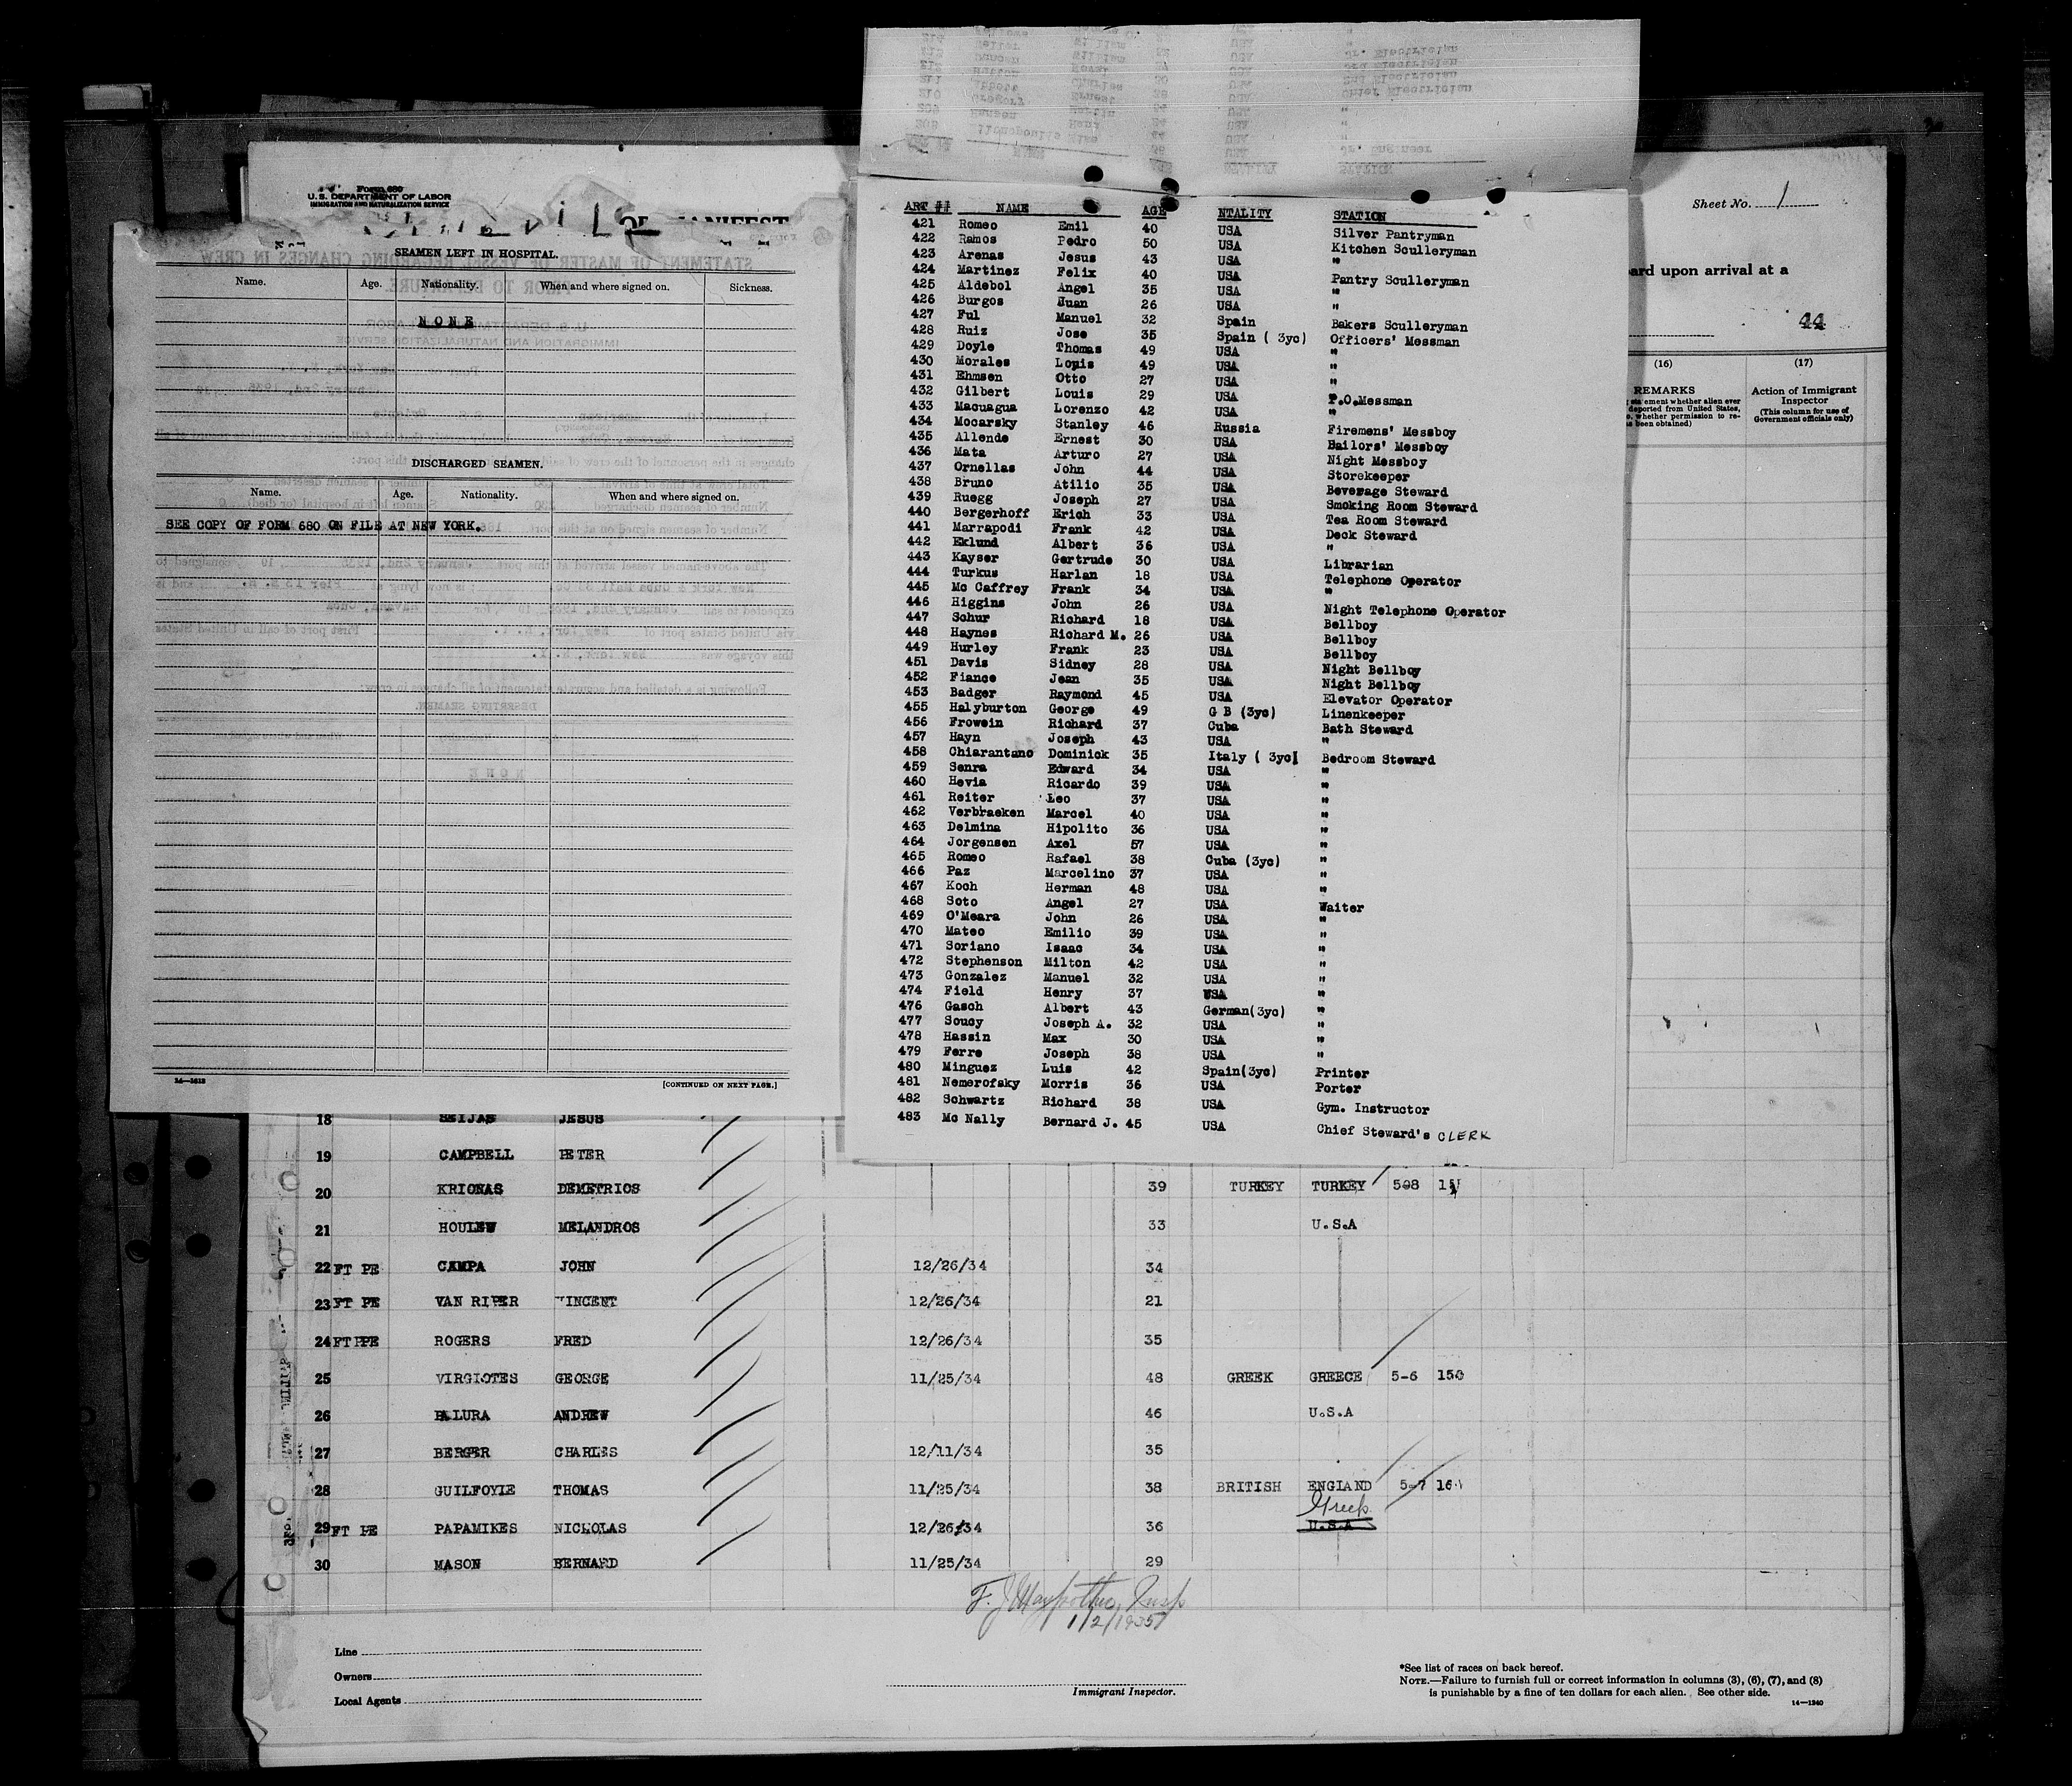 Form 680
U.S. DEPARTMENT OF LABOR
IMMIGRATION AND NATURALIZATION SERVICE
SEAMEN LEFT IN HOSPITAL.
Name. Age. Nationality. When and where signed on. Sickness.
NONE
DISCHARGED SEAMEN.
Name. Age. Nationality. When and where signed on.
SEE COPY OF FORM 680 ON FILE AT NEW YORK.
14—1618 [CONTINUED ON NEXT PAGE.]
ART ## NAME AGE NTALITY STATION
421 Romeo Emil 40 USA Silver Pantryman
422 Ramos Pedro 50 USA Kitchen Sculleryman
423 Arenas Jesus 43 USA "
424 Martinez Felix 40 USA Pantry Sculleryman
425 Aldebol Angel 35 USA "
426 Burgos Juan 26 USA "
427 Ful Manuel 32 Spain Bakers Sculleryman
428 Ruiz Jose 35 Spain ( 3yc) Officers' Messman
429 Doyle Thomas 49 USA "
430 Morales Louis 49 USA "
431 Ehmsen Otto 27 USA "
432 Gilbert Louis 29 USA P.O.Messman
433 Macuagua Lorenzo 42 USA "
434 Mocarsky Stanley 46 Russia Firemens' Messboy
435 Allende Ernest 30 USA Sailors' Messboy
436 Mata Arturo 27 USA Night Messboy
437 Ornellas John 44 USA Storekeeper
438 Bruno Atilio 35 USA Beverage Steward
439 Ruegg Joseph 27 USA Smoking Room Steward
440 Bergerhoff Erich 33 USA Tea Room Steward
441 Marrapodi Frank 42 USA Deck Steward
442 Eklund Albert 36 USA "
443 Kayser Gertrude 30 USA Librarian
444 Turkus Harlan 18 USA Telephone Operator
445 Mc Caffrey Frank 34 USA "
446 Higgins John 26 USA Night Telephone Operator
447 Schur Richard 18 USA Bellboy
448 Haynes Richard M. 26 USA Bellboy
449 Hurley Frank 23 USA Bellboy
451 Davis Sidney 28 USA Night Bellboy
452 Fiance Jean 35 USA Night Bellboy
453 Badger Raymond 45 USA Elevator Operator
455 Halyburton George 49 G B (3yc) Linenkeeper
456 Frowein Richard 37 Cuba Bath Steward
457 Hayn Joseph 43 USA "
458 Chiarantano Dominick 35 Italy ( 3yc) Bedroom Steward
459 Senra Edward 34 USA "
460 Hevia Ricardo 39 USA "
461 Reiter Leo 37 USA "
462 Verbraeken Marcel 40 USA "
463 Delmina Hipolito 36 USA "
464 Jorgensen Axel 57 USA "
465 Romeo Rafael 38 Cuba (3yc) "
466 Paz Marcelino 37 USA "
467 Koch Herman 48 USA "
468 Soto Angel 27 USA Waiter
469 O'Meara John 26 USA "
470 Mateo Emilio 39 USA "
471 Soriano Isaac 34 USA "
472 Stephenson Milton 42 USA "
473 Gonzalez Manuel 32 USA "
474 Field Henry 37 USA "
476 Gasch Albert 43 German(3yc) "
477 Soucy Joseph A. 32 USA "
478 Hassin Max 30 USA "
479 Ferre Joseph 38 USA "
480 Minguez Luis 42 Spain(3yc) Printer
481 Nemerofsky Morris 36 USA Porter
482 Schwartz Richard 38 USA Gym. Instructor
483 Mc Nally Bernard J. 45 USA Chief Steward's CLERK
Sheet No. 1
ard upon arrival at a
44
(16) (17)
REMARKS
Action of Immigrant Inspector
(This column for use of Government officials only)
18 SEIJAS JESUS
19 CAMPBELL PETER
20 KRIONAS DEMETRIOS 39 TURKEY TURKEY 508
21 HOULEW MELANDROS 33 U.S.A
22 FT PE CAMPA JOHN 12/26/34 34
23 FT PE VAN RIPER VINCENT 12/26/34 21
24 FT PE ROGERS FRED 12/26/34 35
25 VIRGIOTES GEORGE 11/25/34 48 GREEK GREECE 5-6 150
26 BALURA ANDREW 46 U.S.A
27 BERGER CHARLES 12/11/34 35
28 GUILFOYLE THOMAS 11/25/34 38 BRITISH ENGLAND 5-7
Greek
29 FT PE PAPAMIKES NICHOLAS 12/26/34 36 U.S.A
30 MASON BERNARD 11/25/34 29
1/2/1935
Line
Owners
Local Agents
Immigrant Inspector.
*See list of races on back hereof.
NOTE.—Failure to furnish full or correct information in columns (3), (6), (7), and (8)
is punishable by a fine of ten dollars for each alien. See other side.
14—1240